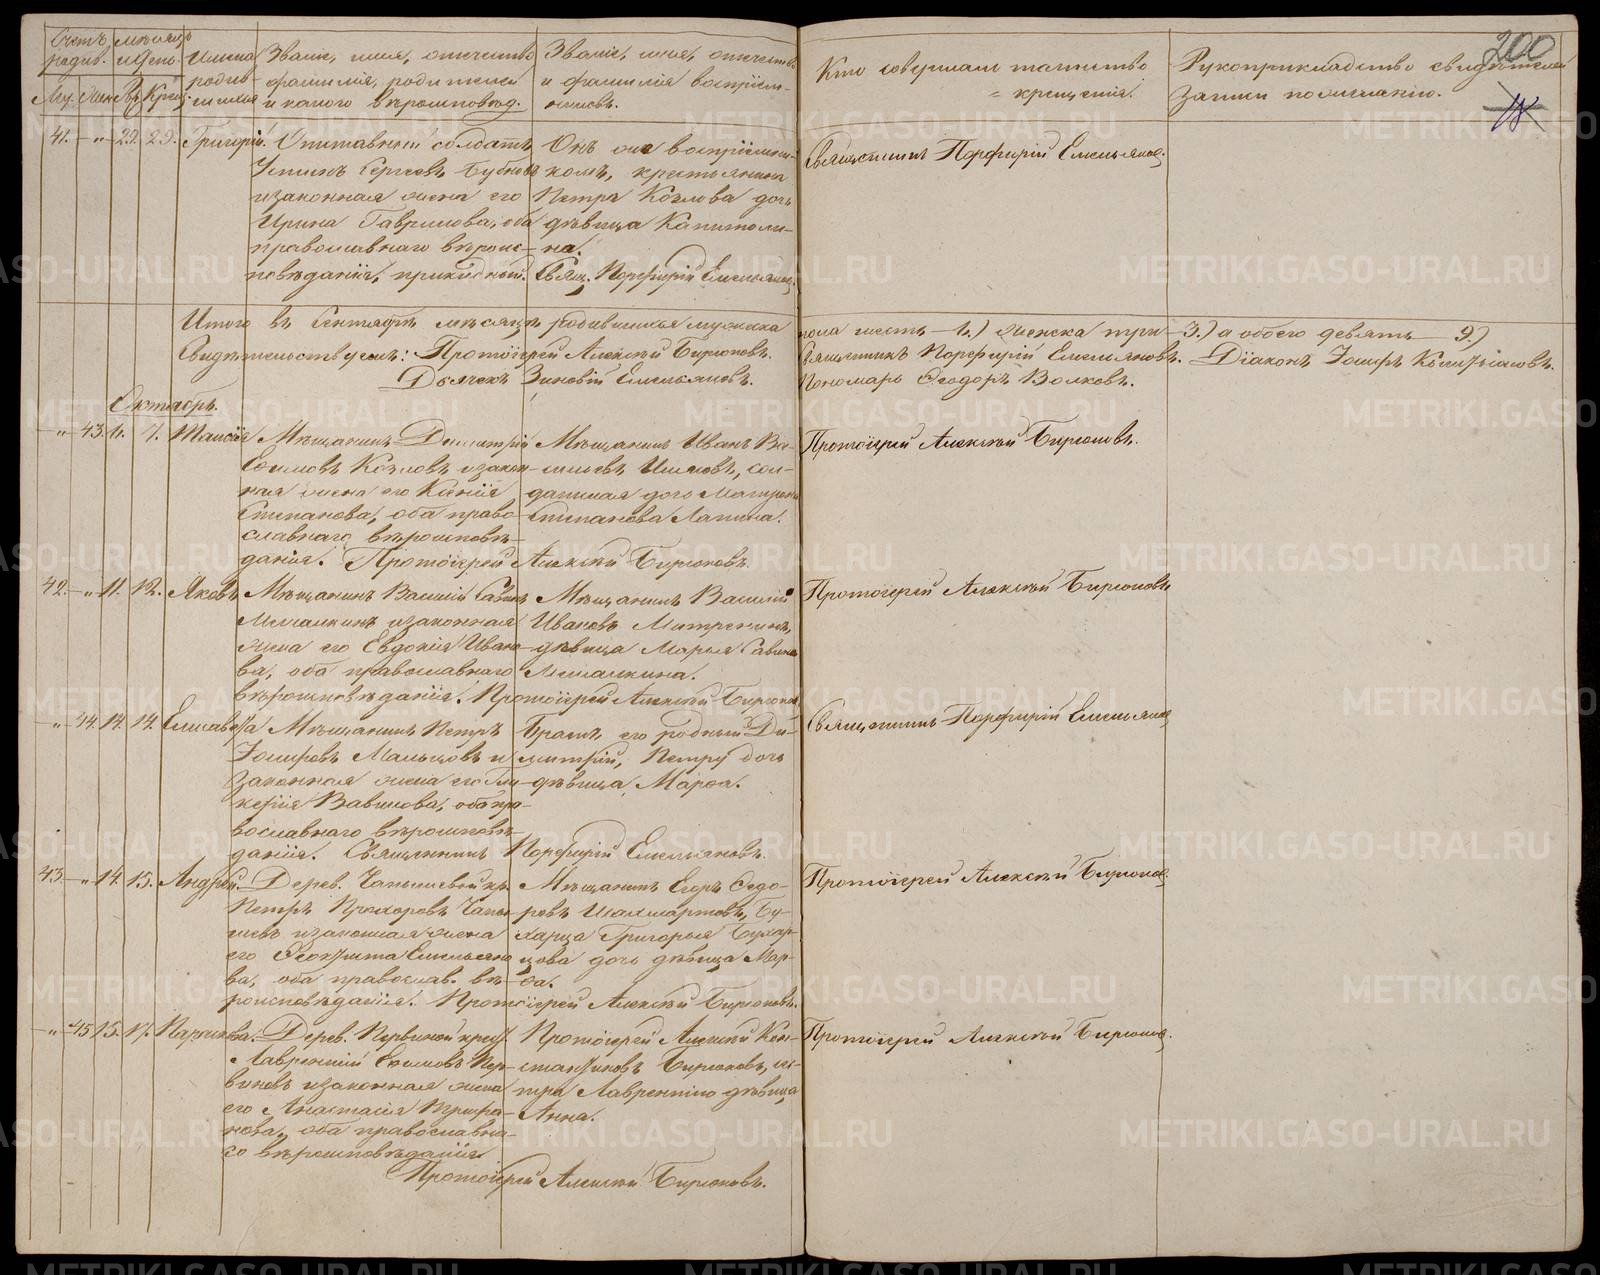 Счетъ родив. | мѣсяцъ и день. | Имена родив-шихся | Званіе, имя, отчество, фамилія, родителей и какого вѣроисповѣд. | Званіе, имя, отчество и фамилія воспріем-никовъ. | Кто совершалъ таинство крещенія. | Рукоприкладство свидѣтелей записи по желанію.
Му. | Жен. | Крещ.
200
18
41. — „ 29. 29. Григорій. Отставный солдатъ
Сергеевъ
и законная жена его
Ирина Гаврилова, оба
православнаго вѣроис-
повѣданія,
Онъ же воспріемни-
комъ, крестьянина
Петра Козлова дочь
дѣвица Капитоли-
на.
Свящ. Порфирій Емельяновъ
Священникъ Порфирій Емельяновъ.
Итого въ Сентябрѣ мѣсяцѣ родившихся мужска пола шесть — 6.) женска три — 3.) а обоего девять — 9.)
Свидѣтельствуемъ: Протоіерей Алексѣй Бирюковъ. Священникъ Порфирій Емельяновъ. Діаконъ Іосифъ
Дьячекъ Зиновій Емельяновъ. Пономарь Ѳеодоръ Волковъ.
Октябрь.
„ 43. 1. 7. Таисія Мѣщанинъ Димитрій
Ефимовъ Козловъ и закон-
ная жена его Ксенія
Степанова, оба право-
славнаго вѣроисповѣ-
данія. Протоіерей Алексѣй Бирюковъ.
Мѣщанинъ Иванъ Ва-
сильевъ сол-
датская дочь Матрена
Степанова Лапина.
Протоіерей Алексѣй Бирюковъ.
42. — „ 11. 12. Яковъ Мѣщанинъ Василій Савинъ
и законная
жена его Евдокія Ивано-
ва, оба православнаго
вѣроисповѣданія. Протоіерей Алексѣй Бирюковъ
Мѣщанинъ Василій
Ивановъ Митрекинъ,
дѣвица Марья Савина
Протоіерей Алексѣй Бирюковъ
„ 44. 14. 14. Елисавета Мѣщанинъ Петръ
Іосифовъ Мальцовъ и
законная жена его Гли-
керія Вавилова, оба пра-
вославнаго вѣроисповѣ-
данія. Священникъ Порфирій Емельяновъ.
Братъ его родный Ди-
митрій, Петру дочь
дѣвица Марѳа.
Священникъ Порфирій Емельяновъ
43. — „ 14. 15. Андрей. Дерев. кр.
Петръ Прохоровъ
и законная жена
его Ѳеоктиста Емельяно-
ва, оба православ. вѣ-
роисповѣданія. Протоіерей Алексѣй Бирюковъ.
Мѣщанинъ Егоръ Ѳедо-
ровъ Шахмартовъ, Бу-
харца Григорья Бухар-
цова дочь дѣвица Мар-
ѳа.
Протоіерей Алексѣй Бирюковъ
„ 45. 15. 17. Параскева. Дерев. Первиной крест.
Лаврентій Ефимовъ Пер-
виновъ и законная жена
его Анастасія Трифо-
нова, оба православна-
го вѣроисповѣданія
Протоіерей Алексѣй Бирюковъ.
Протоіерей Алексѣй Кон-
стантиновъ Бирюковъ, сес-
тра Лаврентію дѣвица
Анна.
Протоіерей Алексѣй Бирюковъ.
METRIKI.GASO-URAL.RU